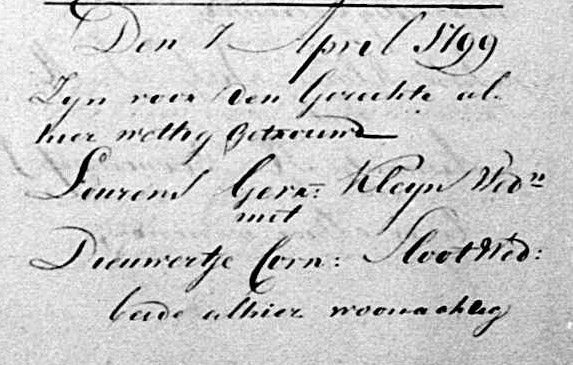 Den 7 April 1799
Zyn voor den Gerechte al-
hier wettig Getrouwd
Lourens Gerr: Kleyn Wedn
met
Dieuwertje Corn: Sloot Wed:
beide alhier woonachtig